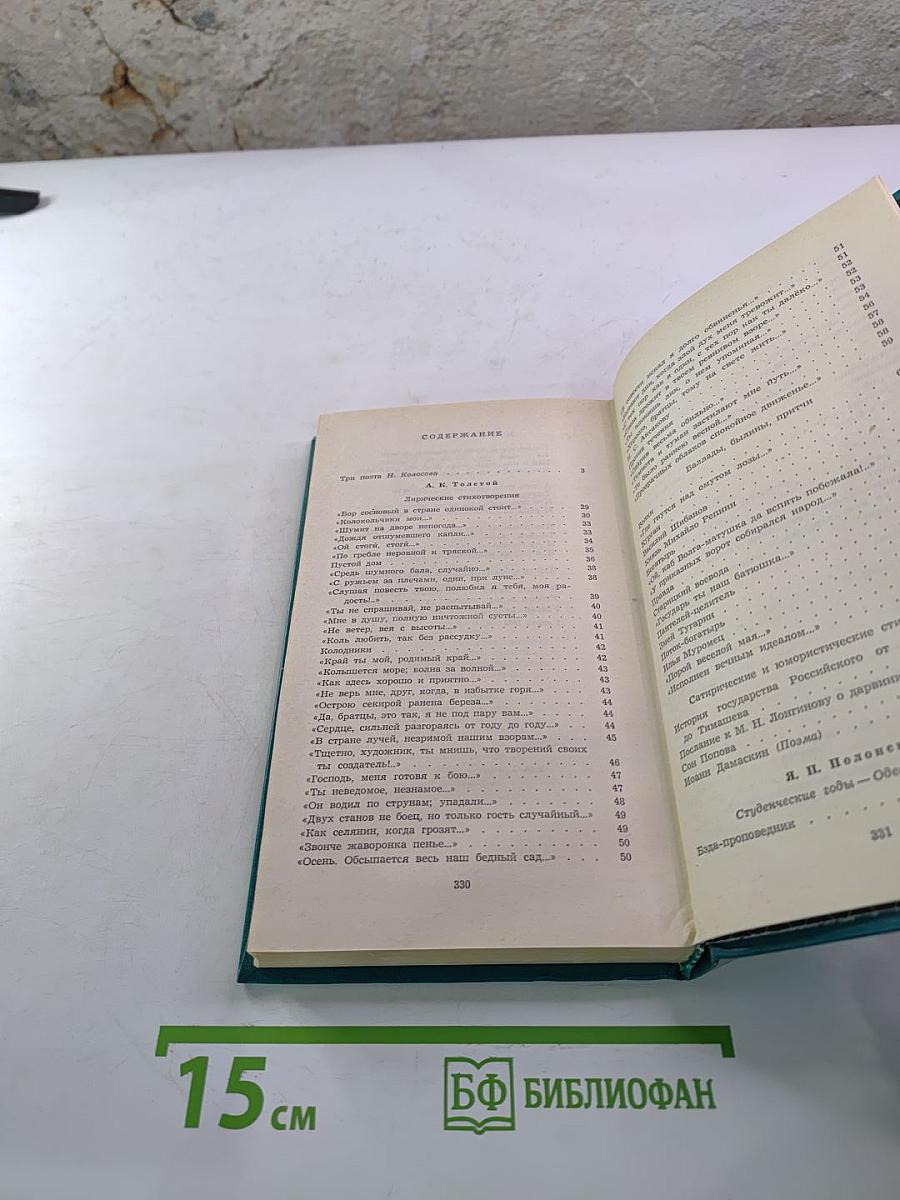 СОДЕРЖАНИЕ
Три поэта Н. Колосова . . . . . . . . . . 3
А. К. Толстой
Лирические стихотворения
«Бор сосновый в стране одинокой стоит...» 29
«Колокольчики мои...» 30
«Шумит на дворе непогода...» 33
«Дождя отшумевшего капли...» 33
«Ой стоги, стоги...» 34
«По гребле неровной и тряской...» 35
Пустой дом 36
«Средь шумного бала, случайно...» 38
«С ружьем за плечами, один, при луне...» 38
«Слушая повесть твою, полюбил я тебя, моя ра-
дость!..» 39
«Ты не спрашивай, не распытывай...» 40
«Мне в душу, полную ничтожной суеты...» 40
«Не ветер, вея с высоты...» 41
«Коль любить, так без рассудку...» 41
Колодники 42
«Край ты мой, родимый край...» 42
«Колышется море; волна за волной...» 43
«Как здесь хорошо и приятно...» 43
«Не верь мне, друг, когда, в избытке горя...» 43
«Острою секирой ранена береза...» 44
«Да, братцы, это так, я не под пару вам...» 44
«Сердце, сильней разгораясь от году до году...» 44
«В стране лучей, незримой нашим взорам...» 45
«Тщетно, художник, ты мнишь, что творений своих
ты создатель!..» 46
«Господь, меня готовя к бою...» 47
«Ты неведомое, незнамое...» 47
«Он водил по струнам; упадали...» 48
«Двух станов не боец, но только гость случайный...» 49
«Как селянин, когда грозят...» 49
«Звонче жаворонка пенье...» 50
«Осень. Обсыпается весь наш бедный сад...» 50
330
совести искал я долго обвиненья...» 51
дни, когда злой дух меня тревожит...» 51
пор как я один, с тех пор как ты далёко...» 52
дрожит в твоем ревнивом взоре...» 52
о нем упоминая...» 53
братцы, тому на свете жить...» 53
течения 54
С. Аксакову 56
весьма обильно...» 57
и туман застилают мне путь...» 58
было раннею весной...» 58
«Прозрачных облаков спокойное движенье...» 59
Баллады, былины, притчи
«Где гнутся над омутом лозы...»
Курган
Василий Шибанов
Князь Михайло Репнин
Богатырь
«Ой, каб Волга-матушка да вспять побежала!..»
«У приказных ворот собирался народ...»
Правда
Старицкий воевода
«Государь ты наш батюшка...»
Пантелей-целитель
Змей Тугарин
Поток-богатырь
Илья Муромец
«Порой веселой мая...»
«Исполнен вечным идеалом...»
Сатирические и юмористические сти
История государства Российского от
до Тимашева
Послание к М. Н. Лонгинову о дарвини
Сон Попова
Иоанн Дамаскин (Поэма)
Я. П. Полонс
Студенческие годы — Оде
Бэда-проповедник
331
15 см
БФ БИБЛИОФАН